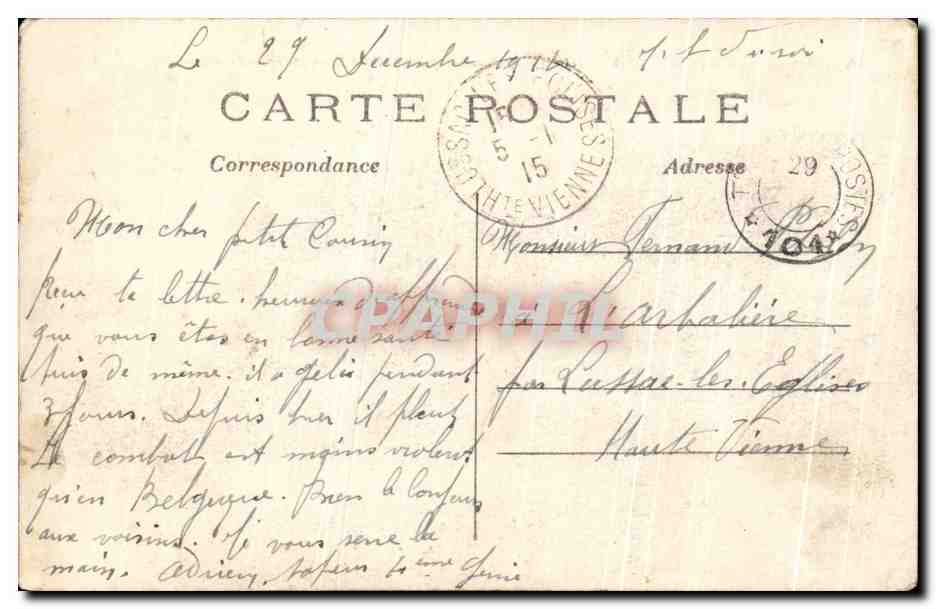 Le 29 Decembre 1914
CARTE POSTALE
Correspondance
Adresse
LUSSAC LES EGLISES
15
5 -1
15
HTE VIENNE
29
POSTES
* 101 *
Mon cher petit Cousin
Reçu ta lettre. heureux d'apprendre
que vous êtes en bonne santé
suis de même. il a gelé pendant
3 jours. Depuis hier il pleut
Le combat est moins violent
qu'en Belgique. Bien le bonjour
aux voisins. Je vous serre la
main. Adrien, sapeur 4eme Génie
Monsieur Fernand
à L'arbalière
par Lussac-les-Eglises
Haute Vienne
CPAPHIL